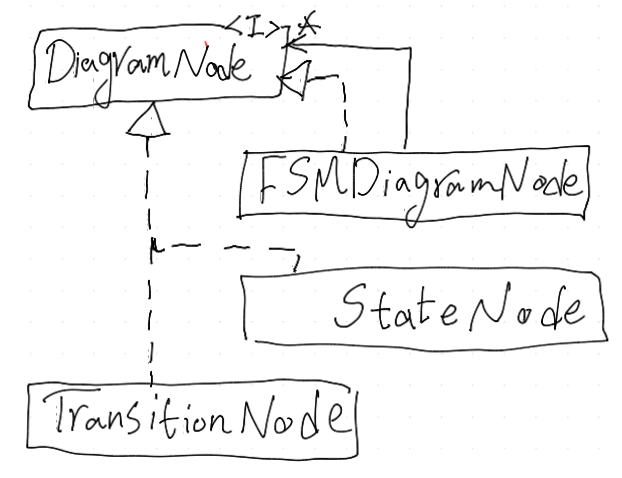 <I> *
DiagramNode
FSMDiagramNode
StateNode
TransitionNode